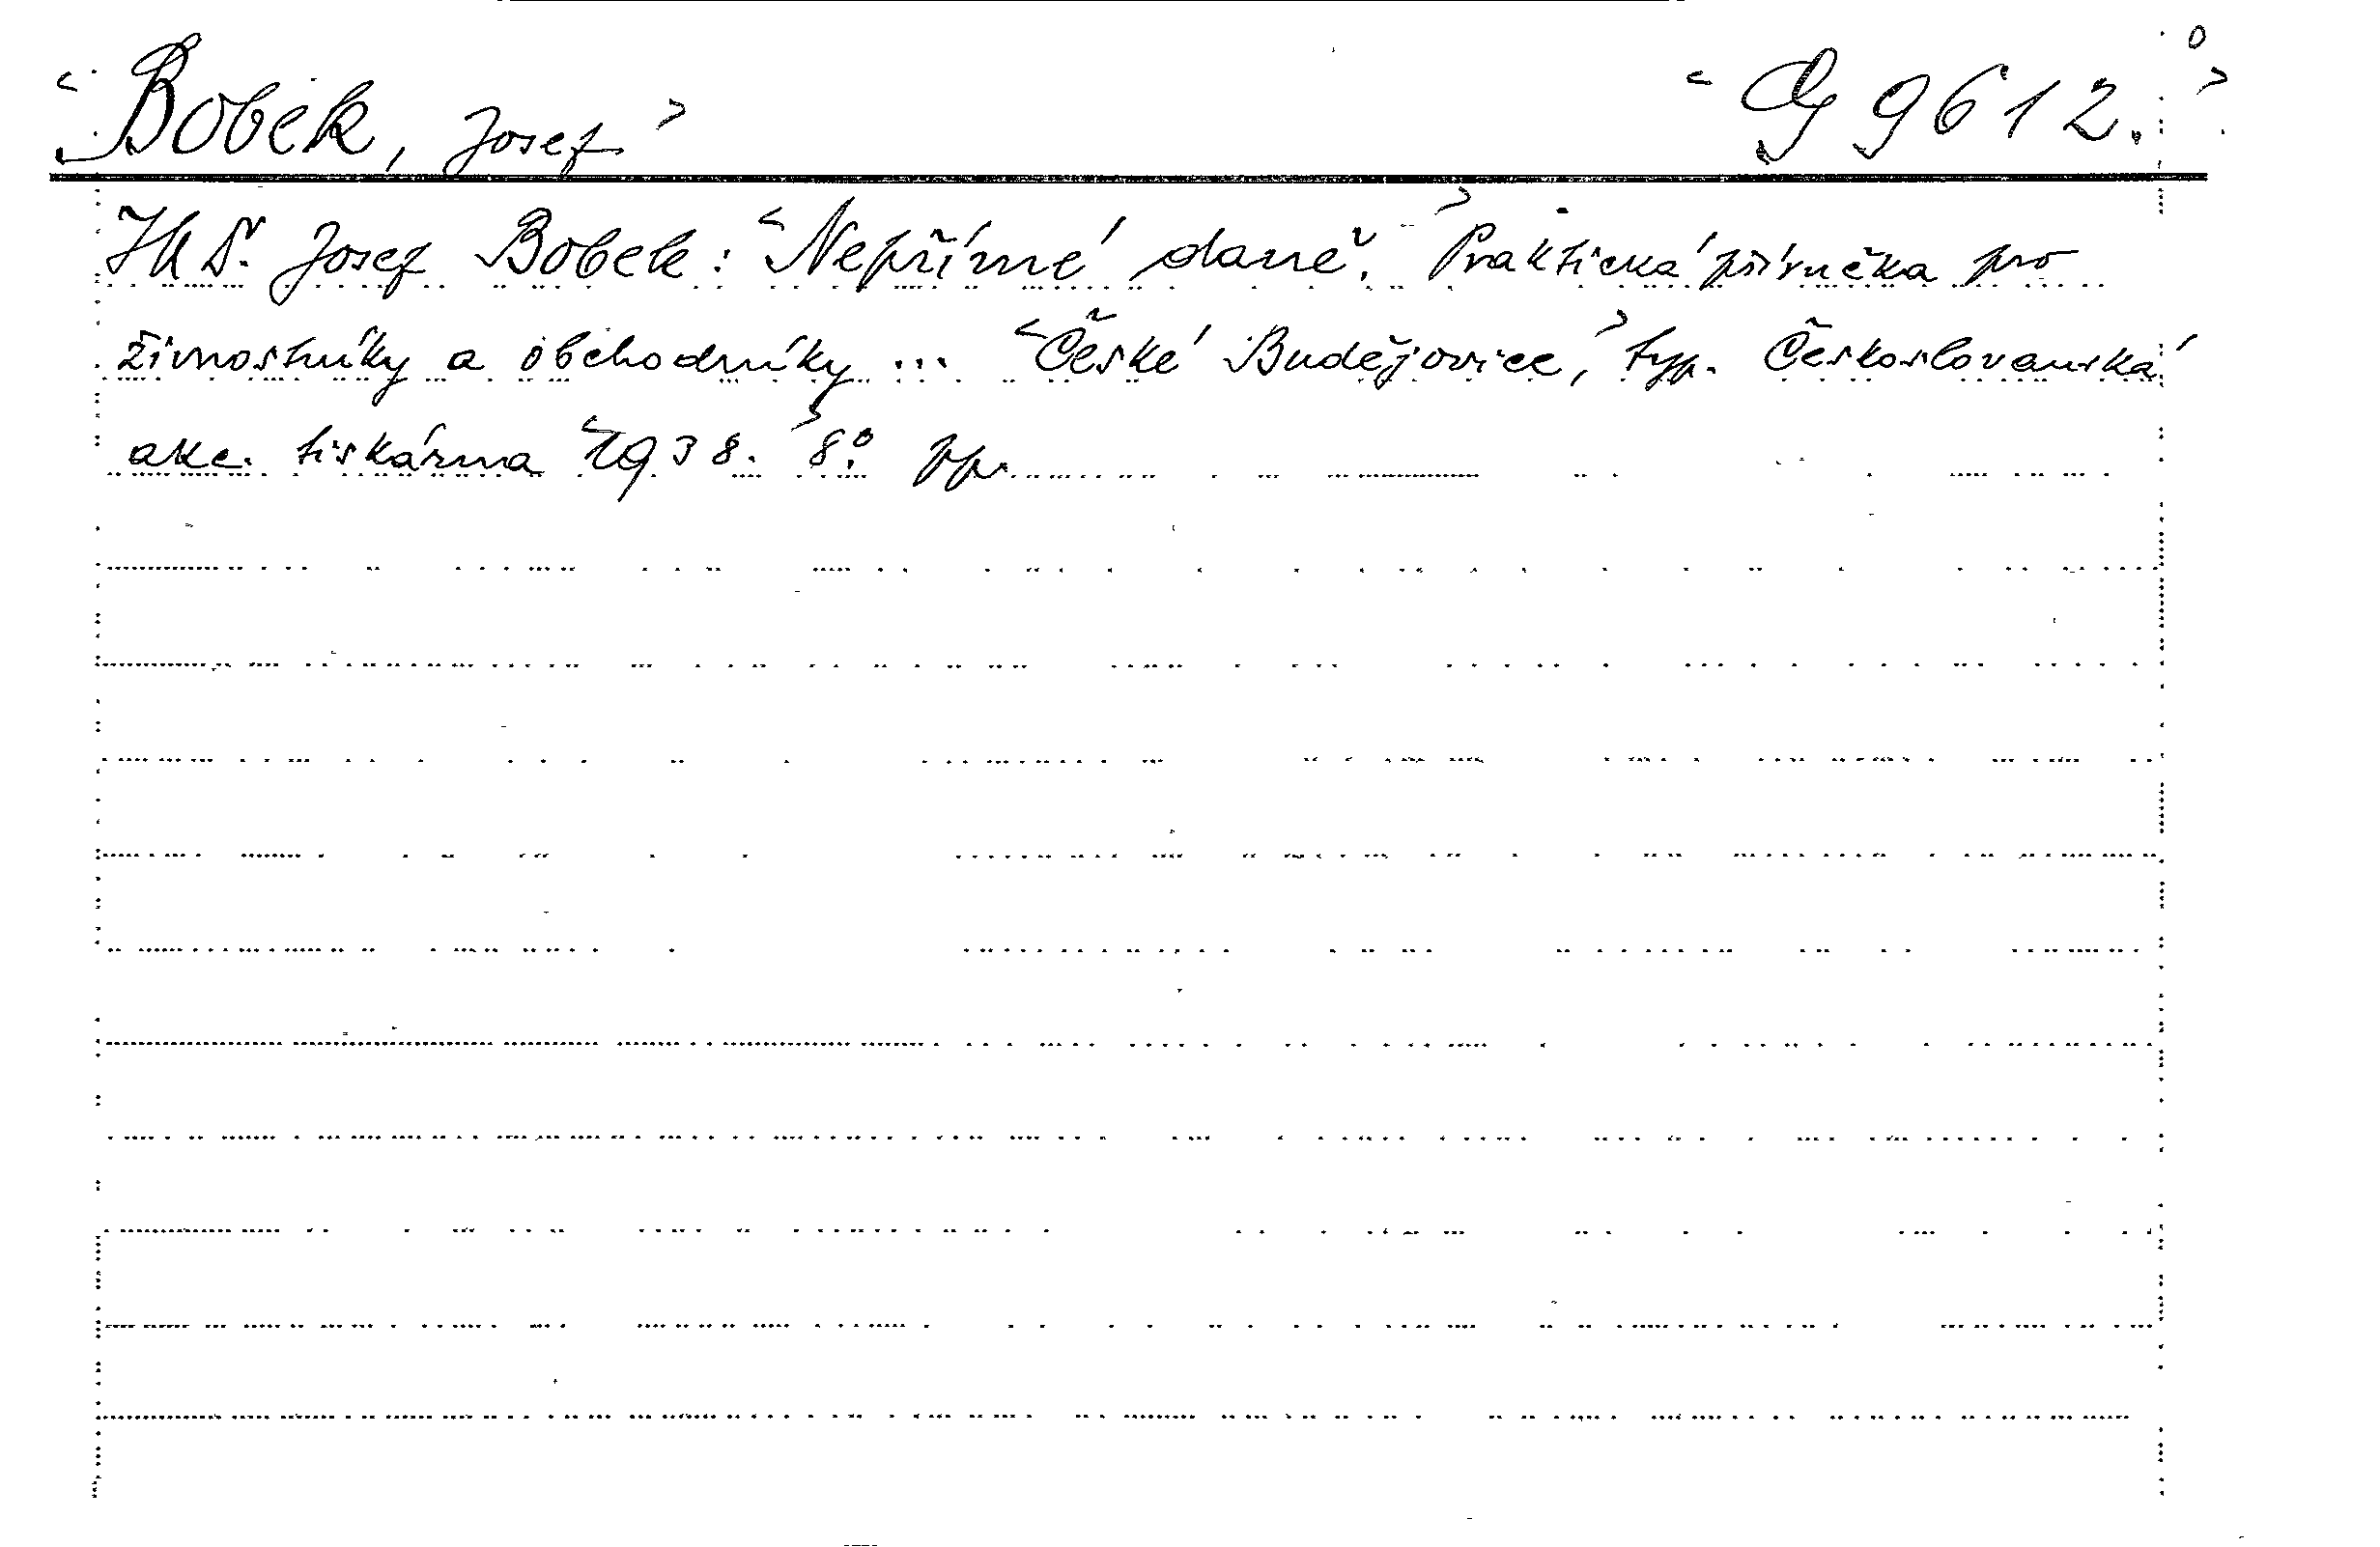 < Bobek, Josef >
< G 9612. >
JUDr. Josef Bobek: < Nepřímé daně. > Praktická příručka pro
živnostníky a obchodníky ... < České Budějovice, > typ. Českoslovanská
akc. tiskárna < 1938. > 8° pp.